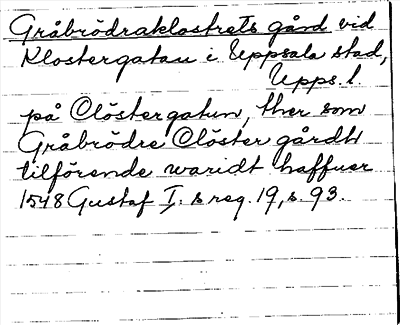 Gråbrödraklostrets gård vid
Klostergatan i Uppsala stad,
Upps. l.
på Clöstergatun, ther som
Gråbrödre Clöster gårdh
tilförende waridt haffuer
1548 Gustaf I. s reg. 19, s. 93.